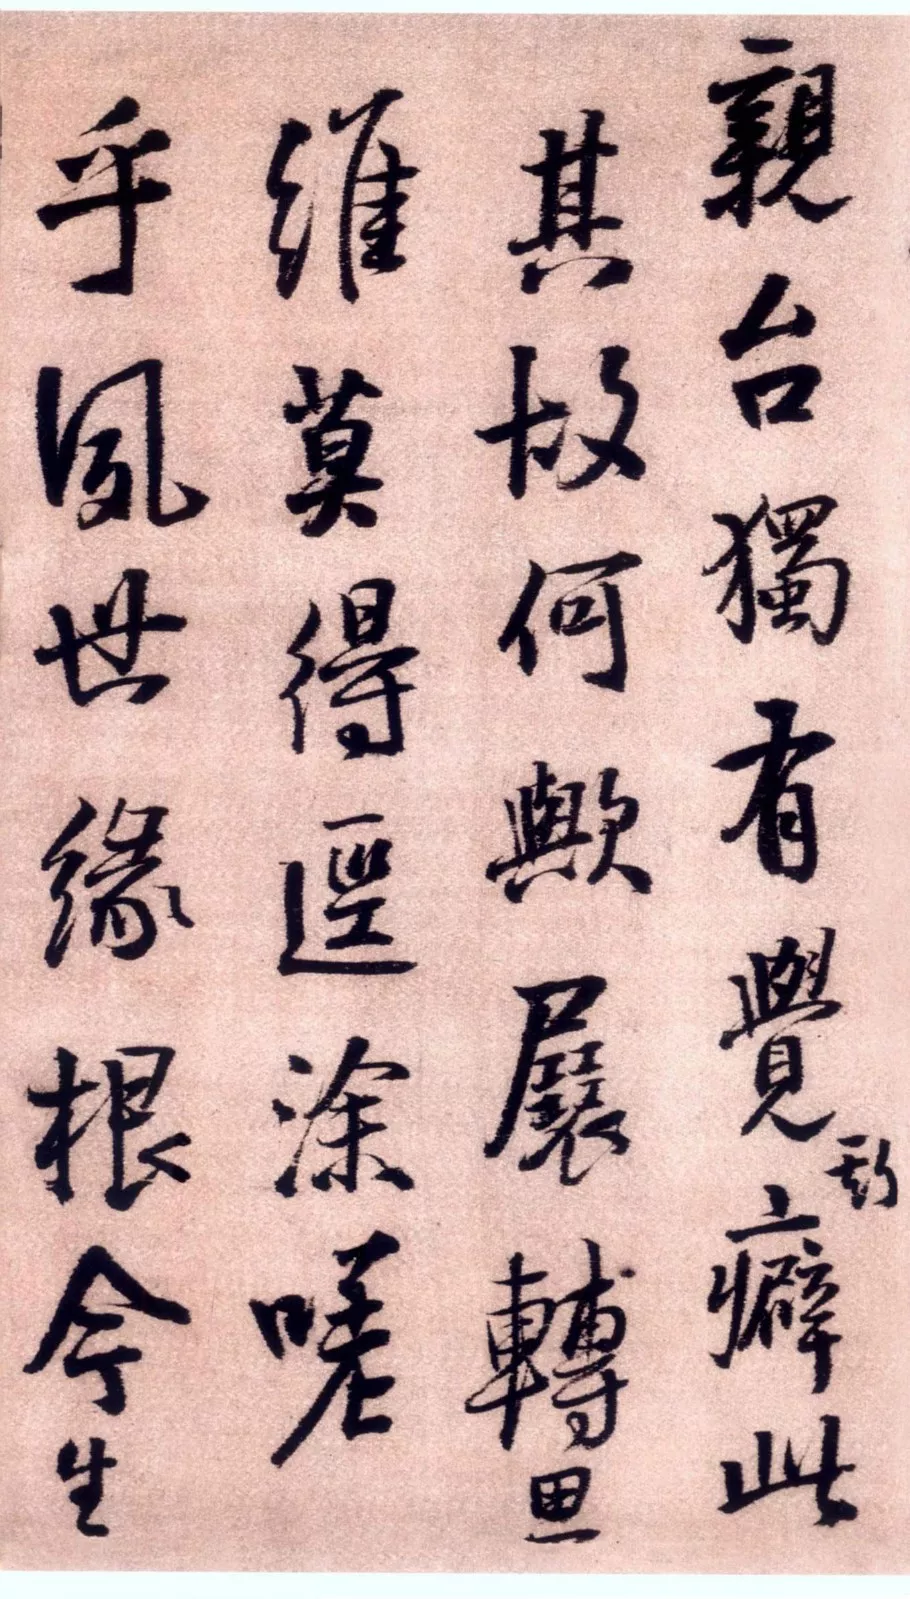 親台獨有覺斯癖此
其故何歟展轉思
維莫得逕涂嗟
乎夙世緣根今生